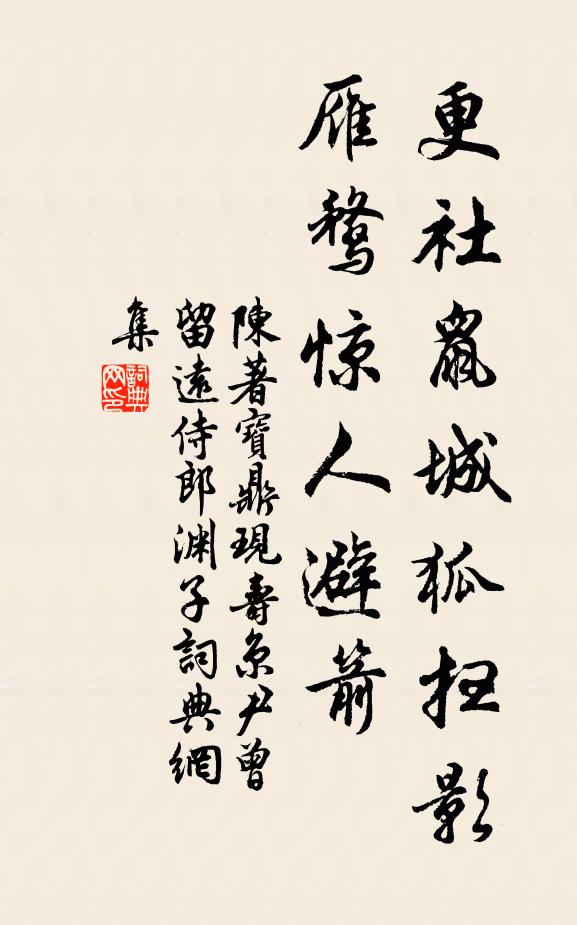 更社鼠城狐扫影
雁鶩惊人避箭
陳著寶鼎現壽京尹曾
留遠侍郎渊子詞典網
集
詞典网印